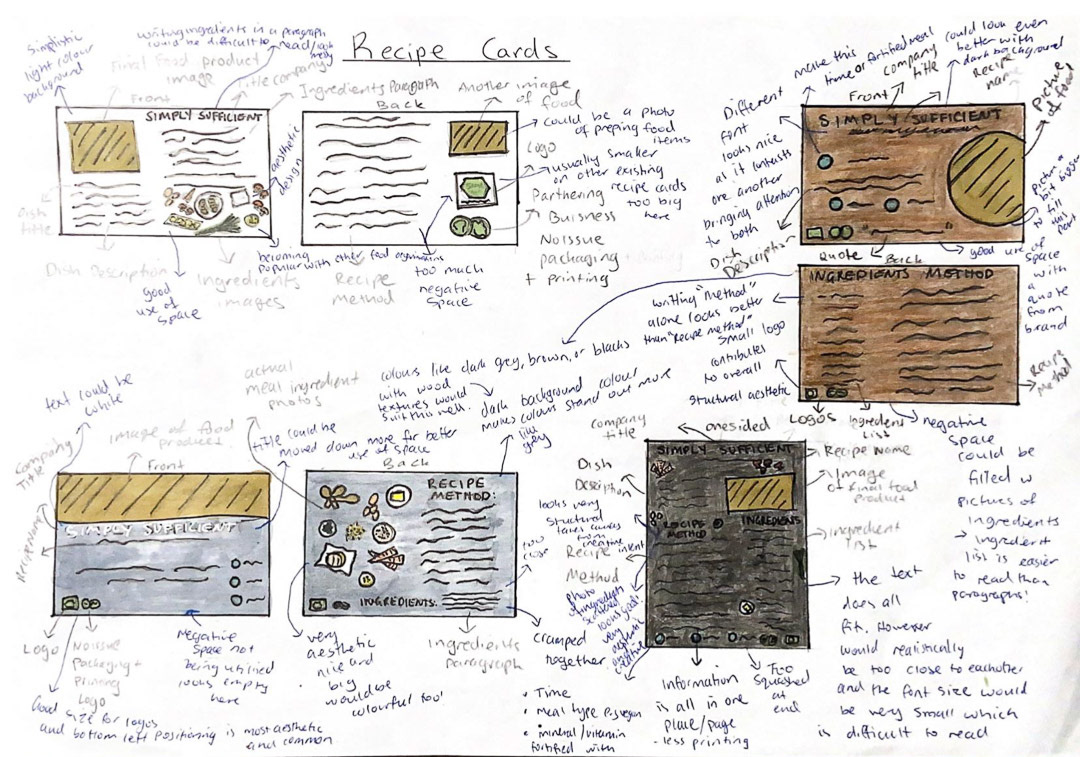 Recipe Cards
Simplistic
light colour
background
writing ingredients in a paragraph
could be difficult to read/look
messy
Final food product
image
Title company
Front
Ingredients Paragraph
Back
Another image
of food
SIMPLY SUFFICIENT
aesthetic
design
Dish
title
Dish Description
good
use of
space
Ingredients
images
becoming
popular with other food organisations
Recipe
Method
too much
negative
space
could be a photo
of preping food
items
Logo
usually smaller
on other existing
recipe cards
too big
here
Parthering
Buisness
Noissue
packaging
+ printing
make this
time or fortified meal
company
title
could look even
better with
dark background
Recipe
name
Front
Picture
of food
SIMPLY SUFFICIENT
Different
font
looks nice
as it contrasts
one another
bringing attention
to both
Dish
Description
Picture a
bit bigger
to fill
Quote
Back
good use of
space
with
a
quote
from
brand
INGREDIENTS METHOD
writing "method"
alone looks better
than "recipe method"
Small logo
contributes
to overall
structural aesthetic
Recipe
Method
Logos
Ingredient
List
negative
space
could be
filled w
pictures of
Ingredients
→ Ingredient
list is easier
to read than
paragraphs!
colours like dark grey, brown, or blacks
with wood
textures would
suit this well.
dark background colour
makes colours stand out more
like
grey
text could be
white
Company
Title
Recipe name
image of food
product
Front
actual
meal ingredient
photos
title could be
moved down more for better
use of space
Back
SIMPLY SUFFICIENT
Logo
Noissue
Packaging +
Printing
Logo
Good size for logos
and bottom left positioning is most aesthetic
and common
Negative
space not
being utilised
looks empty
here
RECIPE
METHOD:
INGREDIENTS:
very
aesthetic
nice and
big
would be
colourful too!
Ingredients
paragraph
too
close
cramped
together
company
title
onesided
SIMPLY SUFFICIENT
Dish
Description
looks very
structural
takes away
from
creative
intent
Recipe
Method
photo
of ingredients
scattered
looks good
very
aesthetic
and
creative
RECIPE
METHOD
INGREDIENTS
Recipe Name
Image
of final food
product
ingredient
list
the text
does all
fit. However
would realistically
be too close to eachother
and the font size would
be very small which
is difficult to read
• Time
• Meal type
• mineral/vitamin
fortified with
Information
is all in one
place/page
- less printing
Too
squashed
at
end